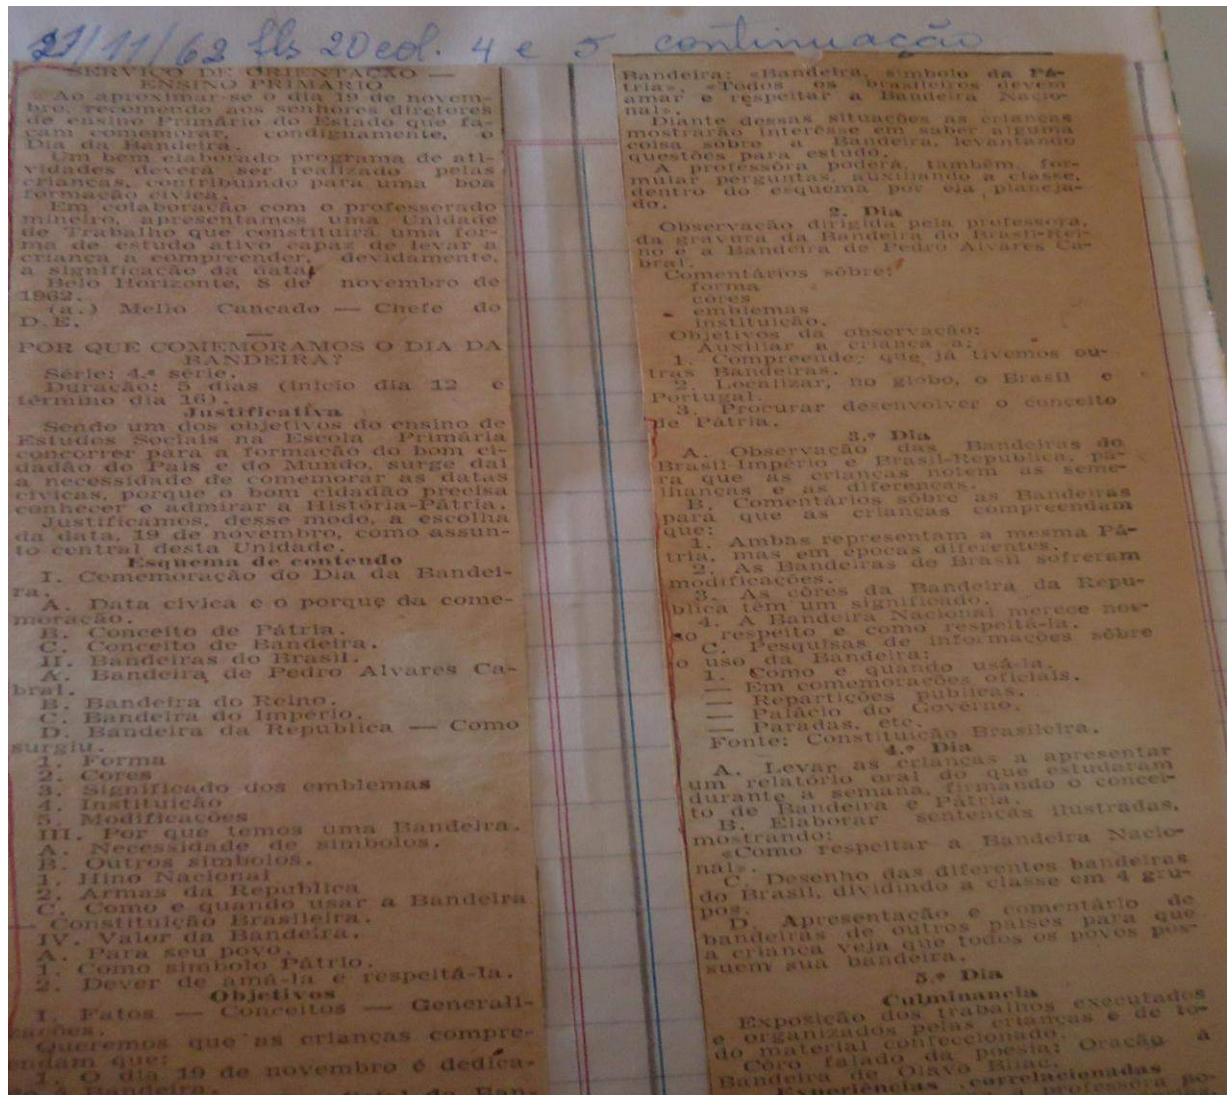 21/11/62 fls 20 col. 4 e 5 continuação
SERVIÇO DE ORIENTAÇÃO —
ENSINO PRIMARIO
Ao aproximar-se o dia 19 de novem-
bro, recomendo aos senhores diretores
de ensino Primário do Estado que fa-
çam comemorar, condignamente, o
Dia da Bandeira.
Um bem elaborado programa de ati-
vidades deverá ser realizado pelas
crianças, contribuindo para uma boa
formação cívica.
Em colaboração com o professorado
mineiro, apresentamos uma Unidade
de Trabalho que constituirá uma for-
ma de estudo ativo capaz de levar a
criança a compreender, devidamente,
a significação da data.
Belo Horizonte, 8 de novembro de
1962.
(a.) Mello Cançado — Chefe do
D.E.
POR QUE COMEMORAMOS O DIA DA
BANDEIRA?
Série: 4.ª série.
Duração: 5 dias (início dia 12 e
término dia 16).
Justificativa
Sendo um dos objetivos do ensino de
Estudos Sociais na Escola Primária
concorrer para a formação do bom ci-
dadão do País e do Mundo, surge daí
a necessidade de comemorar as datas
cívicas, porque o bom cidadão precisa
conhecer e admirar a História-Pátria.
Justificamos, desse modo, a escolha
da data, 19 de novembro, como assun-
to central desta Unidade.
Esquema de conteudo
I. Comemoração do Dia da Bandei-
ra.
A. Data cívica e o porquê da come-
moração.
B. Conceito de Pátria.
C. Conceito de Bandeira.
II. Bandeiras do Brasil.
A. Bandeira de Pedro Alvares Ca-
bral.
B. Bandeira do Reino.
C. Bandeira do Império.
D. Bandeira da República — Como
surgiu.
1. Forma
2. Cores
3. Significado dos emblemas
4. Instituição
5. Modificações
III. Por que temos uma Bandeira.
A. Necessidade de símbolos.
B. Outros símbolos.
1. Hino Nacional
2. Armas da República
C. Como e quando usar a Bandeira
— Constituição Brasileira.
IV. Valor da Bandeira.
A. Para seu povo.
1. Como símbolo Pátrio.
2. Dever de amá-la e respeitá-la.
Objetivos
I. Fatos — Conceitos — Generali-
zações.
Queremos que as crianças compre-
endam que:
1. O dia 19 de novembro é dedica-
do à Bandeira.
Bandeira: «Bandeira, símbolo da Pá-
tria», «Todos os brasileiros devem
amar e respeitar a Bandeira Nacio-
nal».
Diante dessas situações as crianças
mostrarão interêsse em saber alguma
coisa sôbre a Bandeira, levantando
questões para estudo.
A professôra poderá, também, for-
mular perguntas, auxiliando a classe,
dentro do esquema por ela planeja-
do.
2. Dia
Observação dirigida pela professora,
da gravura da Bandeira do Brasil-Rei-
no e a Bandeira de Pedro Alvares Ca-
bral.
Comentários sôbre:
forma
côres
emblemas
instituição.
Objetivos da observação:
Auxiliar a criança a:
1. Compreender que já tivemos ou-
tras Bandeiras.
2. Localizar, no globo, o Brasil e
Portugal.
3. Procurar desenvolver o conceito
de Pátria.
3.º Dia
A. Observação das Bandeiras do
Brasil-Império e Brasil-República, pa-
ra que as crianças notem as seme-
lhanças e as diferenças.
B. Comentários sôbre as Bandeiras
para que as crianças compreendam
que:
1. Ambas representam a mesma Pá-
tria, mas em épocas diferentes.
2. As Bandeiras do Brasil sofreram
modificações.
3. As côres da Bandeira da Repu-
blica têm um significado.
4. A Bandeira Nacional merece nos-
so respeito e como respeitá-la.
C. Pesquisas de informações sôbre
o uso da Bandeira:
1. Como e quando usá-la.
— Em comemorações oficiais.
— Repartições públicas.
— Palácio do Govêrno.
— Paradas, etc.
Fonte: Constituição Brasileira.
4.º Dia
A. Levar as crianças a apresentar
um relatório oral do que estudaram
durante a semana, firmando o concei-
to de Bandeira e Pátria.
B. Elaborar sentenças ilustradas,
mostrando:
«Como respeitar a Bandeira Nacio-
nal».
C. Desenho das diferentes bandeiras
do Brasil, dividindo a classe em 4 gru-
pos.
D. Apresentação e comentário de
bandeiras de outros países para que
a criança veja que todos os povos pos-
suem sua bandeira.
5.º Dia
Culminancia
Exposição dos trabalhos executados
e organizados pelas crianças e de to-
do material confeccionado.
Côro falado da poesia: Oração à
Bandeira de Olavo Bilac.
Experiências correlacionadas